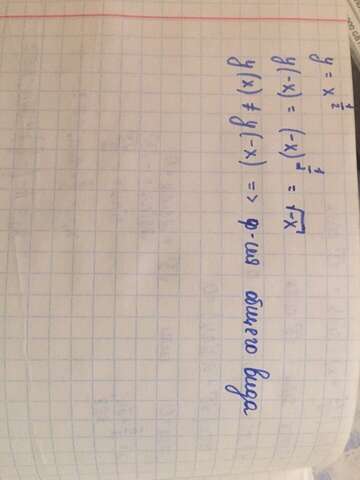 y = x^{\frac{1}{2}}
y(-x) = (-x)^{\frac{1}{2}} = \sqrt{-x}
y(x) ≠ y(-x) => ф-ция общего вида